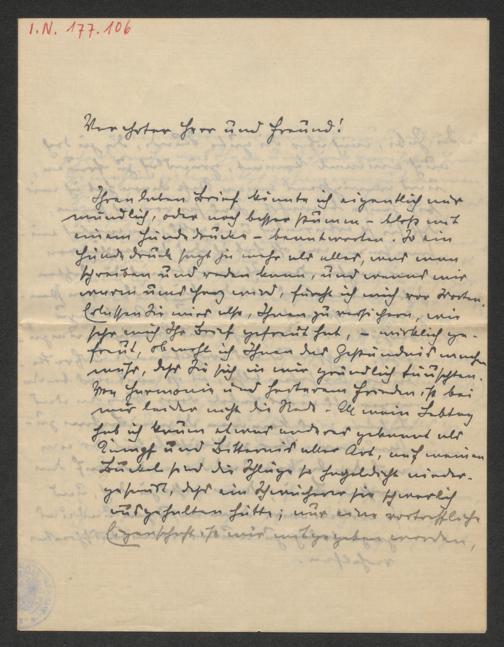 I.N. 177.106
Verehrter Herr und Freund!
Ihren lieben Brief könnte ich eigentlich nur
mündlich, oder noch besser stumm – bloß mit
einem Händedrucke – beantworten. So ein
Händedruck sagt ja mehr als alles, was man
schreiben und reden kann, und wenns mir
warm ums Herz wird, fürcht ich mich vor Worten.
Erlassen Sie mir's also, Ihnen zu versichern, wie
sehr mich Ihr Brief gefreut hat, – wirklich ge-
freut, obwohl ich Ihnen das Geständnis machen
muß, daß Sie sich in mir gründlich täuschten.
Von Harmonie und heiterem Frieden ist bei
mir leider nicht die Rede. – All mein Lebtag
hab ich kaum etwas anderes gekannt als
Kampf und Bitternis aller Art, auf meinen
Buckel sind die Schläge so hageldicht nieder-
gesaust, daß ein Schwächerer sie schwerlich
ausgehalten hätte; nur eine vortreffliche
Eigenschaft ist mir mitgegeben worden,